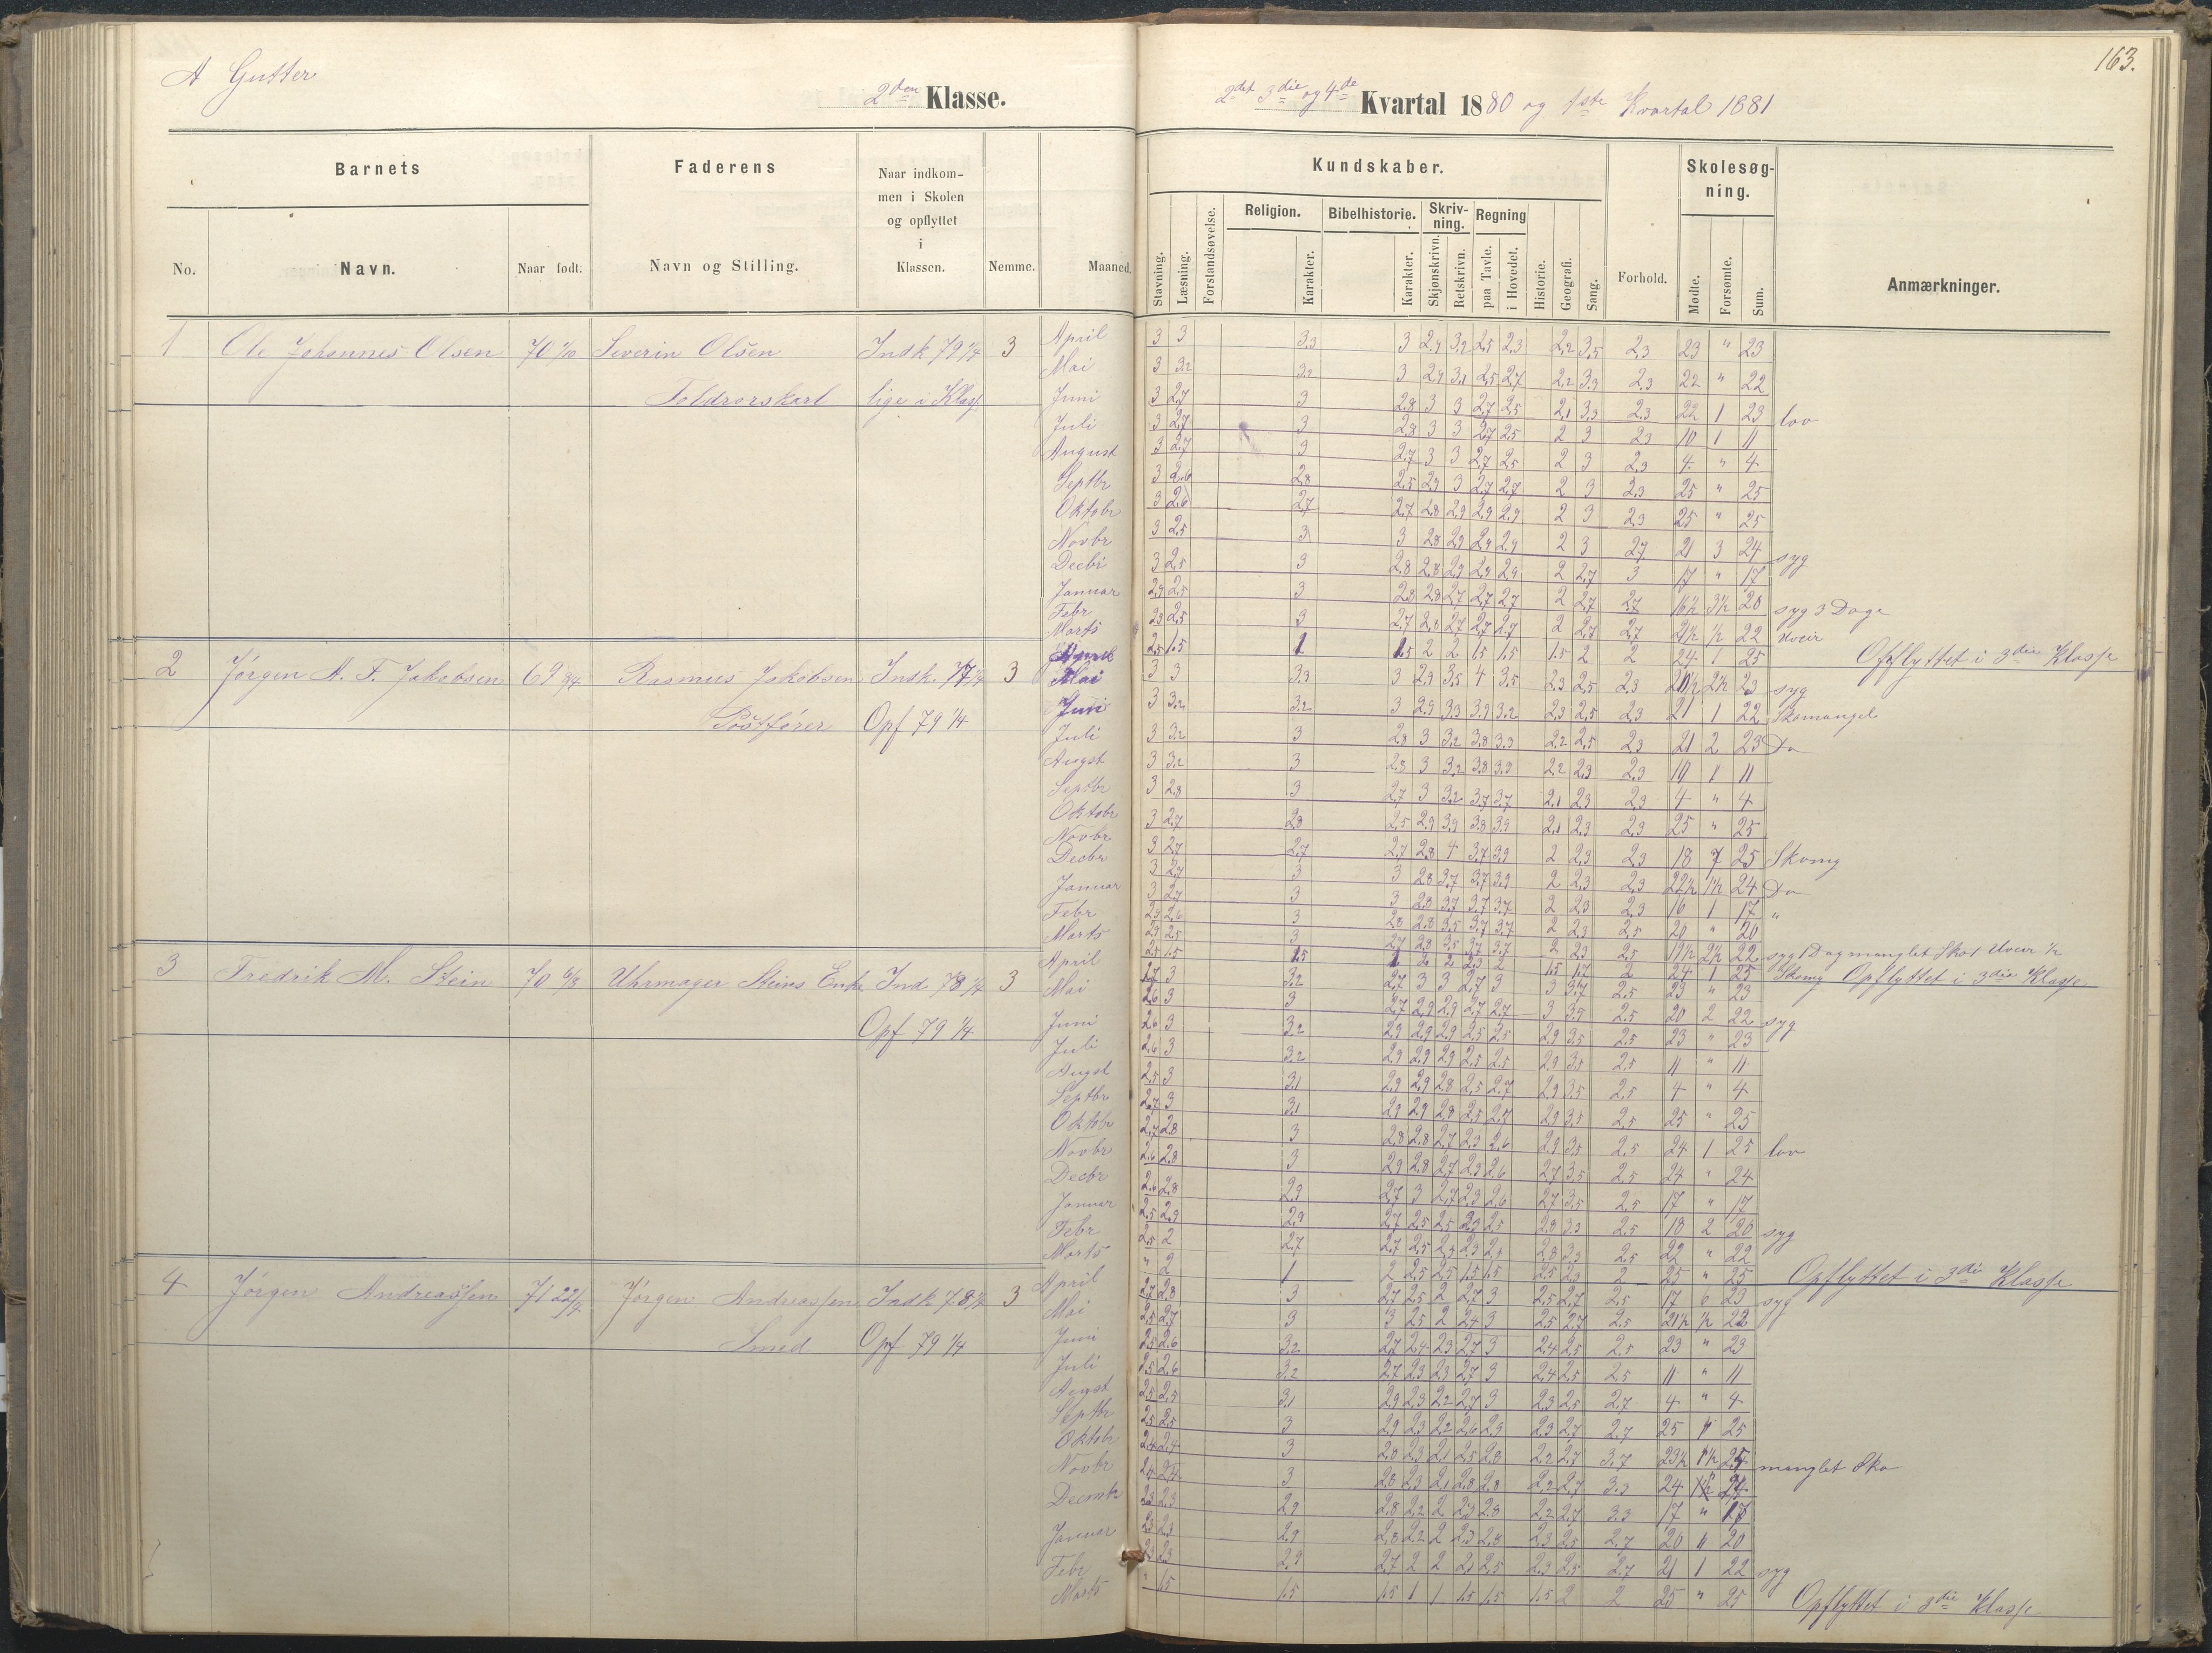 A Gutter
2den Klasse.
Barnets
Faderens
Naar indkom-
men i Skolen
og opflyttet
i
Klassen.
No.
Navn.
Naar født.
Navn og Stilling.
Nemme.
Maaned.
1 Ole Johannes Olsen 70 1/10 Severin Olsen Indk 79 1/4 3 April
Mai
Toldrorskarl lige i Klass
Juni
Juli
August
Septbr
Oktobr
Novbr
Decbr
Januar
Febr
Marts
2 Jørgen A. F. Jakobsen 69 3/4 Rasmus Jakobsen Indk. 77 1/4 3 Mai
Juni
Postfører Opf 79 1/4
Juli
Augst
Septbr
Oktobr
Novbr
Decbr
Januar
Febr
Marts
April
3 Fredrik M. Stein 70 6/3 Uhrmager Steins Enke Ind 78 1/4 3 Mai
Opf 79 1/4 Juni
Juli
Augst
Septbr
Oktobr
Novbr
Decbr
Januar
Febr
Marts
April
4 Jørgen Andreassen 71 22/7 Jørgen Andreassen Indk 78 1/4 3 Mai
Smed Opf 79 1/4 Juni
Juli
Augst
Septbr
Oktobr
Novbr
Decmbr
Januar
Febr
Marts
163.
2det 3die og 4de Kvartal 1880 og 1ste Kvartal 1881
Kundskaber.
Skolesøg-
ning.
Religion.
Bibelhistorie.
Skriv-
ning.
Regning
Stavning.
Læsning.
Forstandsøvelse.
Karakter.
Karakter.
Skjønskrivn.
Retskrivn.
paa Tavle.
i Hovedet.
Historie.
Geografi.
Sang.
Forhold.
Mødte.
Forsømte.
Sum.
Anmærkninger.
3 3 3.3 3 2.9 3.2 2.5 2.3 2.2 3.5 2.3 23 " 23
3 3.2 3.2 3 2.9 3.1 2.5 2.7 2.2 3.3 2.3 22 " 22
3 2.7 3 2.8 3 3 2.7 2.5 2.1 3.3 2.3 22 1 23 lov
3 2.7 3 2.8 3 3 2.7 2.5 2 3 2.3 10 1 11
3 2.7 3 2.7 3 3 2.7 2.5 2 3 2.3 4 " 4
3 2.6 2.8 2.5 2.9 3 2.7 2.7 2 3 2.3 25 " 25
3 2.6 2.7 2.7 2.8 2.9 2.9 2.9 2 3 2.3 25 " 25
3 2.5 3 3 2.8 2.9 2.9 2.9 2 3 2.7 21 3 24 syg
3 2.5 3 2.8 2.8 2.9 2.9 2.9 2 2.7 3 17 " 17
2.9 2.5 3 2.8 2.8 2.7 2.7 2.7 2 2.7 2.7 16½ 3½ 20 syg 3 Dage
2.9 2.5 3 2.7 2.8 2.7 2.7 2.7 2 2.7 2.7 21½ ½ 22 uveir
2.5 1.5 1 1.5 2 2 1.5 1.5 1.5 2 2 24 1 25 Opflyttet i 3die Klasse
3 3 3.3 3 2.9 3.5 4 3.5 2.3 2.5 2.3 20½ 2½ 23 syg
3 3.2 3.2 3 2.9 3.3 3.9 3.2 2.3 2.5 2.3 21 1 22 Skomangel
3 3.2 3 2.8 3 3.2 3.8 3.3 2.2 2.5 2.3 21 2 23 Do
3 3.2 3 2.8 3 3.2 3.8 3.9 2.2 2.3 2.3 10 1 11
3 2.8 3 2.7 3 3.2 3.7 3.7 2.1 2.3 2.3 4 " 4
3 2.7 2.8 2.5 2.9 3.9 3.8 3.9 2.1 2.3 2.3 25 " 25
3 2.7 2.7 2.7 2.8 4 3.7 3.9 2 2.3 2.3 18 7 25 Skomg
3 2.7 3 3 2.8 3.7 3.7 3.9 2 2.3 2.3 22½ 1½ 24 Do
3 2.7 3 3 2.8 3.7 3.7 3.7 2 2.3 2.3 16 1 17 "
2.9 2.6 3 2.8 2.8 3.5 3.7 3.7 2 2.3 2.5 20 " 20
2.9 2.5 3 2.7 2.8 3.5 3.7 3.7 2 2.3 2.5 19½ 2½ 22 syg 1 Dag manglet Sko 1 Uveir ½
2.5 1.5 1.5 1 2 2 2.3 2 1.5 1.7 2 24 1 25 Skomg Opflyttet i 3die Klasse
2.7 3 3.2 2.7 3 3 2.7 3 3 3.7 2.5 23 " 23
2.6 3 3 2.7 2.9 2.9 2.7 2.7 3 3.5 2.5 20 2 22 syg
2.6 3 3.2 2.9 2.9 2.9 2.5 2.5 2.9 3.5 2.5 23 " 23
2.6 3 3.2 2.9 2.9 2.9 2.5 2.5 2.9 3.5 2.5 11 " 11
2.5 3 3.1 2.9 2.9 2.8 2.5 2.7 2.9 3.5 2.5 4 " 4
2.7 3 3.1 2.9 2.9 2.8 2.5 2.7 2.9 3.5 2.5 25 " 25
2.7 2.8 3 2.8 2.8 2.7 2.3 2.6 2.9 3.5 2.5 24 1 25 lov
2.6 2.8 3 2.9 2.8 2.7 2.3 2.6 2.7 3.5 2.5 24 " 24
2.6 2.8 2.9 2.7 3 2.7 2.3 2.6 2.7 3.5 2.5 17 " 17
2.5 2.9 2.9 2.7 2.5 2.5 2.3 2.5 2.8 3.3 2.5 18 2 20 syg
2.5 2 2.7 2.7 2.5 2.3 2.3 2.5 2.8 3.3 2.5 22 " 22
" 2 1 2 2.5 2.5 1.5 1.5 2.5 2.3 2 25 " 25 Opflyttet i 3die Klasse
2.7 2.8 3 2.7 2.5 2 2.7 3 2.5 2.7 2.5 17 6 23 syg
2.5 2.7 3 3 2.5 2 2.4 3 2.5 2.7 2.5 21½ ½ 22
2.5 2.6 3.2 2.7 2.4 2.3 2.7 3 2.4 2.5 2.5 23 " 23
2.5 2.6 3.2 2.7 2.3 2.3 2.7 3 2.4 2.5 2.5 11 " 11
2.5 2.5 3.1 2.9 2.3 2.2 2.7 3 2.3 2.5 2.7 4 " 4
2.5 2.5 3 2.9 2.3 2.2 2.6 2.9 2.3 2.7 2.7 25 " 25
2.4 2.4 3 2.8 2.3 2.1 2.5 2.8 2.2 2.7 3.7 23½ 1½ 25 manglet Sko
2.4 2.4 3 2.8 2.3 2.1 2.8 2.8 2.2 2.7 3.3 24 " 24
2.3 2.3 2.9 2.8 2.2 2 2.3 2.8 2.2 2.7 3.3 17 " 17
2.3 2.3 2.9 2.8 2.2 2 2.3 2.8 2.3 2.5 2.7 20 " 20
2.3 2.3 2.9 2.7 2 2 2.1 2.5 2.3 2.5 2.7 21 1 22 syg
" 1.5 1.5 1.5 1 1 1.5 1.5 1.5 2 2 25 " 25 Opflyttet i 3die Klasse